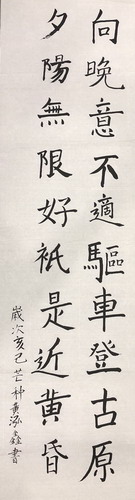 向晚意不適驅車登古原
夕陽無限好祇是近黃昏
歲次亥己芒种黃泓鑫書